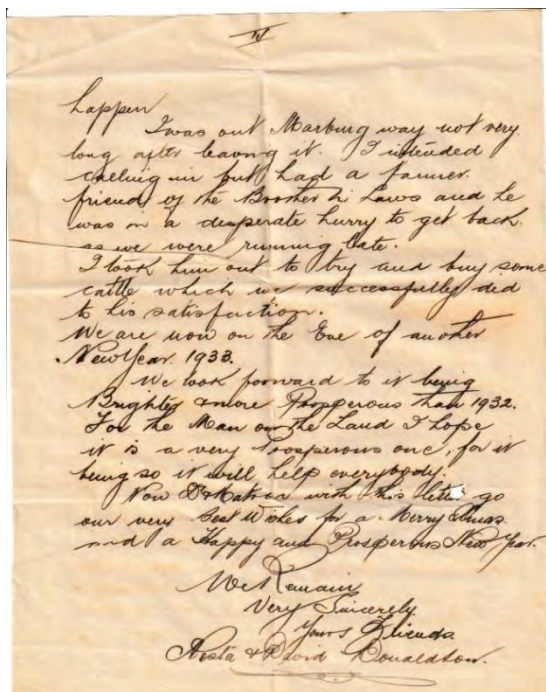 IV
happen
I was out Marburg way not very
long after leaving it. I intended
calling in but had a farmer
friend of the Brother in Laws and he
was in a desperate hurry to get back
as we were running late.
I took him out to try and buy some
cattle which we successfully did
to his satisfaction.
We are now on the Eve of another
New Year. 1933.
We look forward to it being
Brighter & more Prosperous than 1932.
For the Man on the Land I hope
it is a very Prosperous one, for it
being so it will help everybody.
Now with this letter go
our very Best Wishes for a Merry Xmas
and a Happy and Prosperous New Year.
We Remain
Very Sincerely
Yours Friends
& David Donaldson.